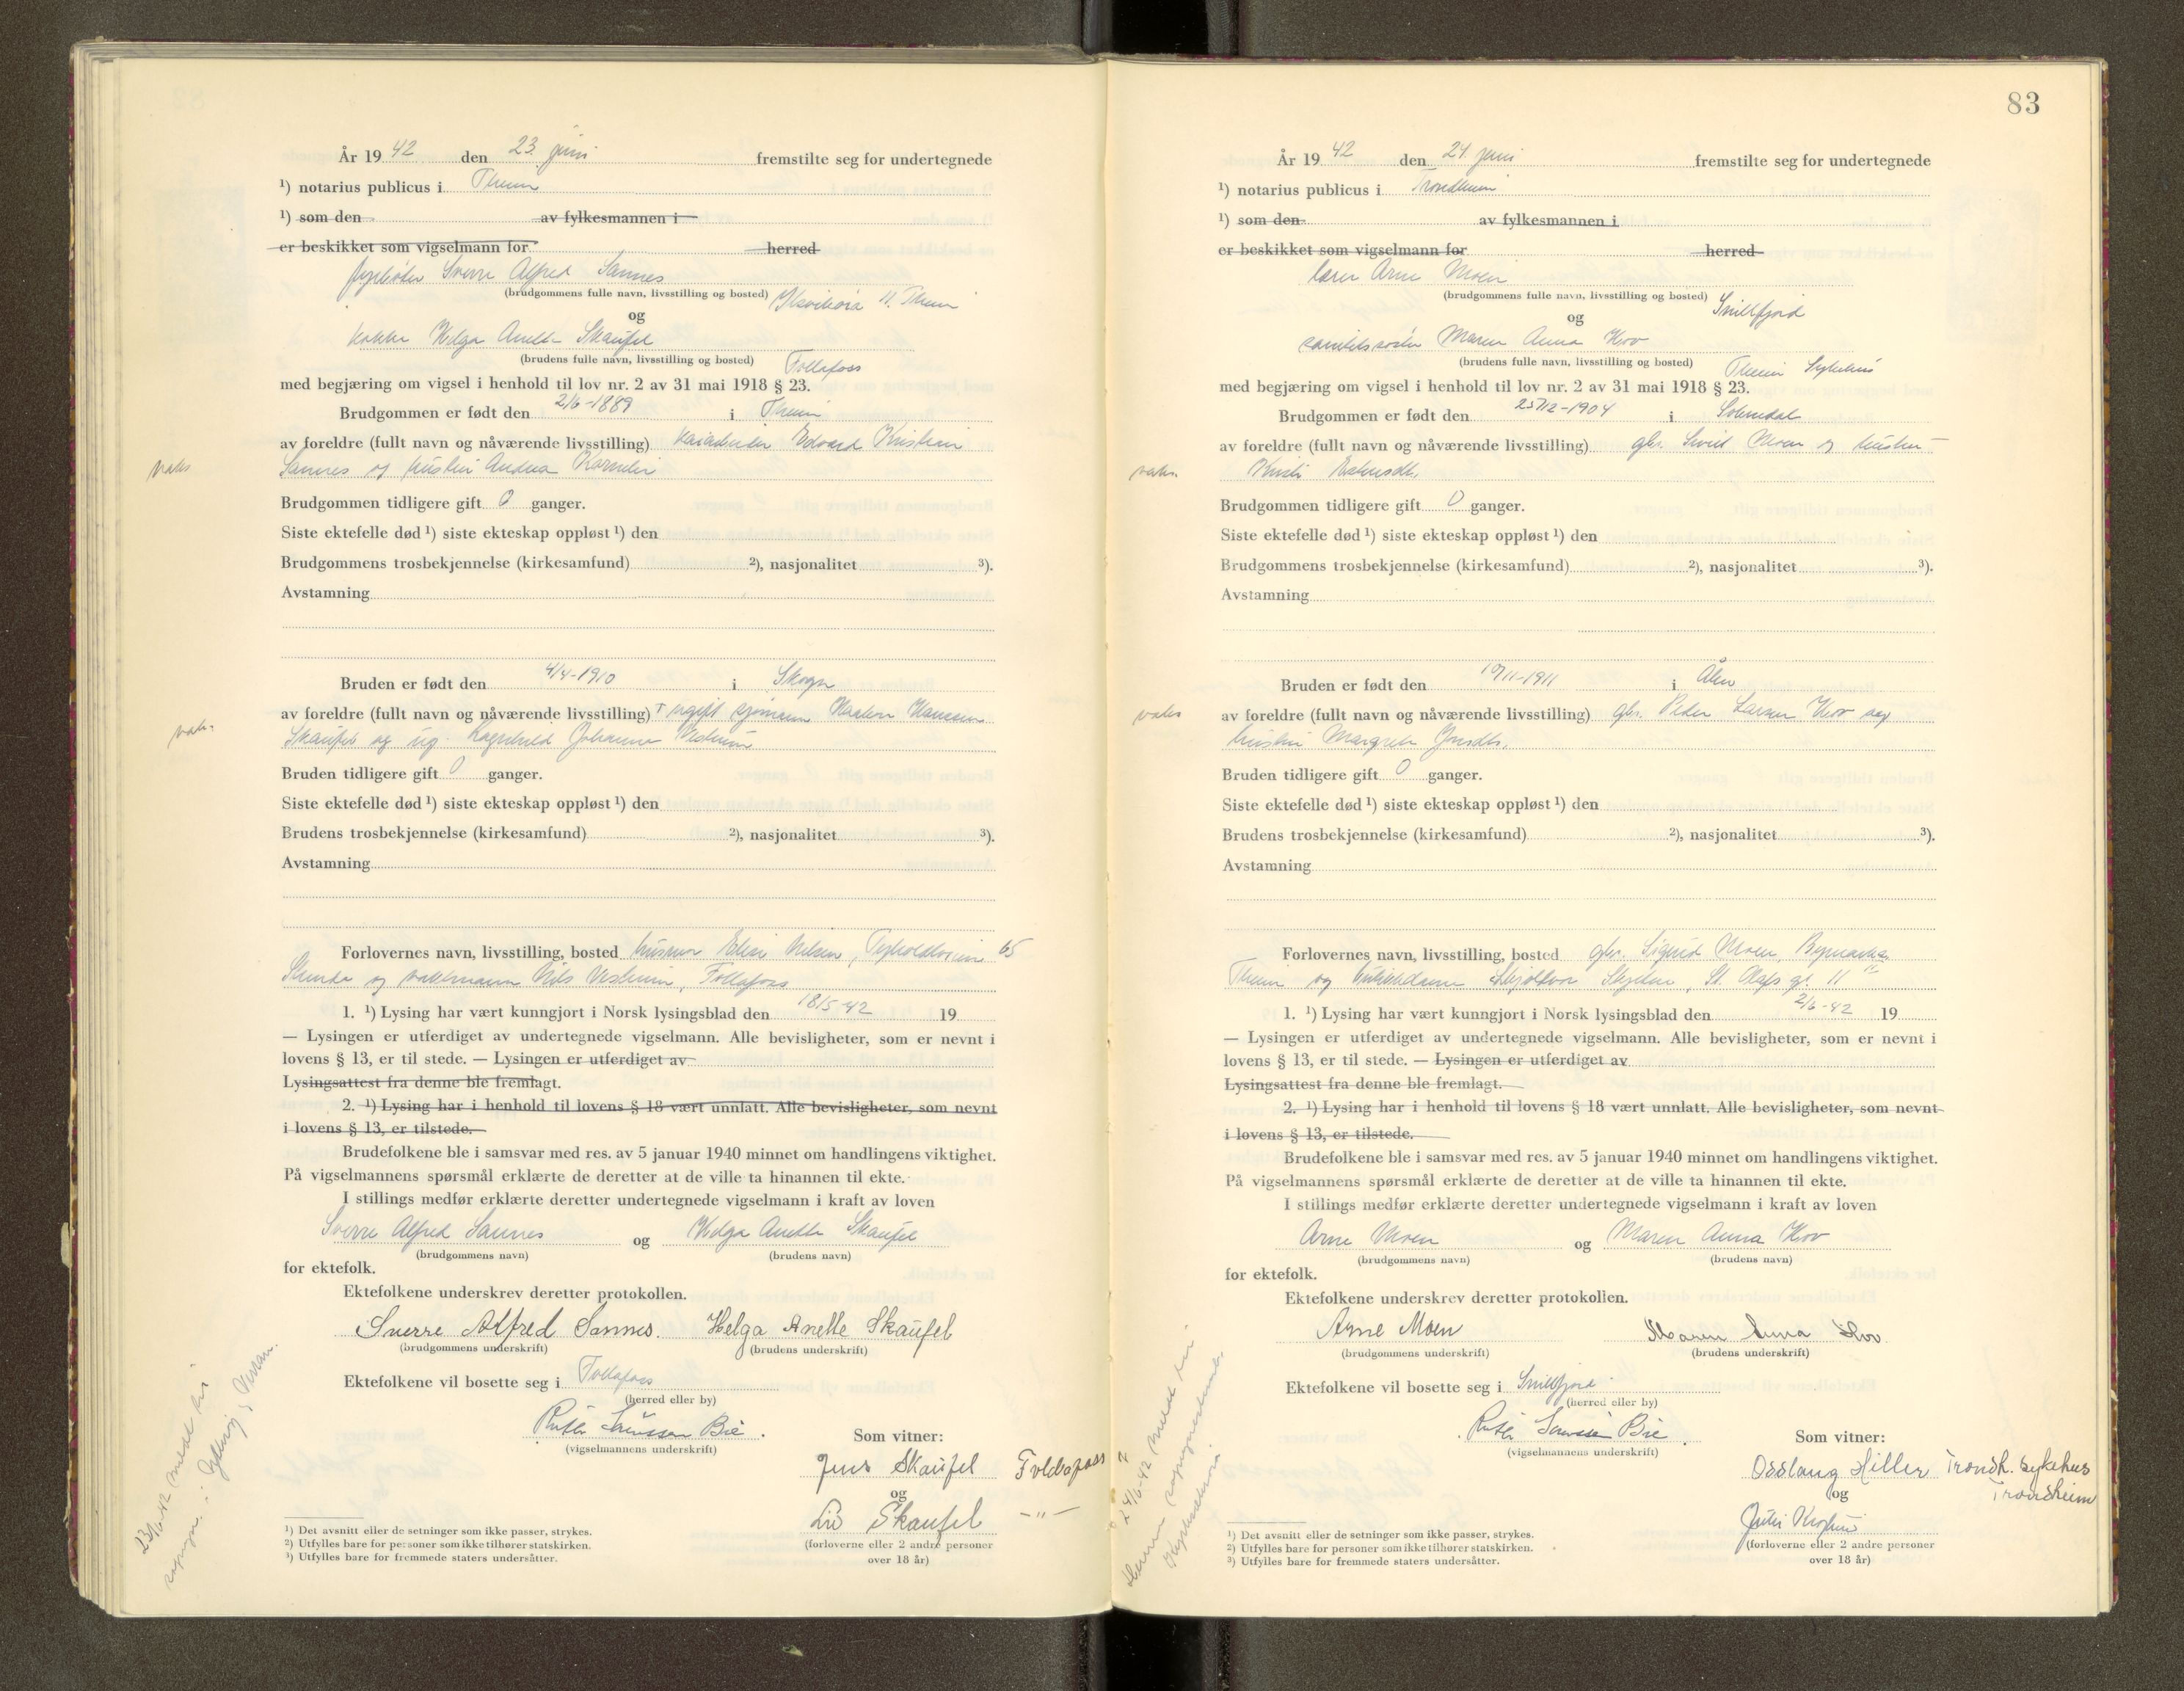 År 19 42 den 23. juni fremstilte seg for undertegnede
¹) notarius publicus i Theim
¹) som den av fylkesmannen i
er beskikket som vigselmann for herred
Sverre Alfred Sannes
(brudgommens fulle navn, livsstilling og bosted) Theim
og
kokke Helga Anette Skaufel
(brudens fulle navn, livsstilling og bosted) Follafoss
med begjæring om vigsel i henhold til lov nr. 2 av 31 mai 1918 § 23.
Brudgommen er født den 2/6-1889 i Theim
av foreldre (fullt navn og nåværende livsstilling) kaiarbeider Edvard Kristian
Sannes og hustru Andrea
vaks
Brudgommen tidligere gift 0 ganger.
Siste ektefelle død ¹) siste ekteskap oppløst ¹) den
Brudgommens trosbekjennelse (kirkesamfund) ²), nasjonalitet ³).
Avstamning
Bruden er født den 4/4-1910 i Skogn
av foreldre (fullt navn og nåværende livsstilling) ugift sjømann Haakon Hanssen
Skaufel og ug. Ragnhild Johanna
vaks.
Bruden tidligere gift 0 ganger.
Siste ektefelle død ¹) siste ekteskap oppløst ¹) den
Brudens trosbekjennelse (kirkesamfund) ²), nasjonalitet ³).
Avstamning
Forlovernes navn, livsstilling, bosted husmor Elise Nilsen, 65
Strinda og vaktmann Nils Follafoss
1. ¹) Lysing har vært kunngjort i Norsk lysingsblad den 18/5-42 19
— Lysingen er utferdiget av undertegnede vigselmann. Alle bevisligheter, som er nevnt i
lovens § 13, er til stede. — Lysingen er utferdiget av
Lysingsattest fra denne ble fremlagt.
2. ¹) Lysing har i henhold til lovens § 18 vært unnlatt. Alle bevisligheter, som nevnt
i lovens § 13, er tilstede.
Brudefolkene ble i samsvar med res. av 5 januar 1940 minnet om handlingens viktighet.
På vigselmannens spørsmål erklærte de deretter at de ville ta hinannen til ekte.
I stillings medfør erklærte deretter undertegnede vigselmann i kraft av loven
Sverre Alfred Sannes og Helga Anette Skaufel
(brudgommens navn) (brudens navn)
for ektefolk.
Ektefolkene underskrev deretter protokollen.
Sverre Alfred Sannes. Helga Anette Skaufel
(brudgommens underskrift) (brudens underskrift)
Ektefolkene vil bosette seg i Follafoss
(herred eller by)
Bie.
(vigselmannens underskrift) Som vitner:
Jens Skaufel Follafoss
og
Liv Skaufel -"-
(forloverne eller 2 andre personer
over 18 år)
¹) Det avsnitt eller de setninger som ikke passer, strykes.
²) Utfylles bare for personer som ikke tilhører statskirken.
³) Utfylles bare for fremmede staters undersåtter.
23/6-42 meldt til
sogn.
83
År 19 42 den 24. juni fremstilte seg for undertegnede
¹) notarius publicus i Trondheim
¹) som den av fylkesmannen i
er beskikket som vigselmann for herred
lærer Arne Moen
(brudgommens fulle navn, livsstilling og bosted) Snillfjord
og
Maren Anna Hov
(brudens fulle navn, livsstilling og bosted) Theim Sykehus
med begjæring om vigsel i henhold til lov nr. 2 av 31 mai 1918 § 23.
Brudgommen er født den 23/12-1904 i
av foreldre (fullt navn og nåværende livsstilling) gbr. Moen og hustru
Kirsti
vaks.
Brudgommen tidligere gift 0 ganger.
Siste ektefelle død ¹) siste ekteskap oppløst ¹) den
Brudgommens trosbekjennelse (kirkesamfund) ²), nasjonalitet ³).
Avstamning
Bruden er født den 19/11-1911 i Ålen
av foreldre (fullt navn og nåværende livsstilling) gbr. Peder Larsen Hov og
hustru Margrete
vaks
Bruden tidligere gift 0 ganger.
Siste ektefelle død ¹) siste ekteskap oppløst ¹) den
Brudens trosbekjennelse (kirkesamfund) ²), nasjonalitet ³).
Avstamning
Forlovernes navn, livsstilling, bosted gbr. Sigurd Moen, Bymarka
Theim og St. Olafs gt. 11
1. ¹) Lysing har vært kunngjort i Norsk lysingsblad den 2/6-42 19
— Lysingen er utferdiget av undertegnede vigselmann. Alle bevisligheter, som er nevnt i
lovens § 13, er til stede. — Lysingen er utferdiget av
Lysingsattest fra denne ble fremlagt.
2. ¹) Lysing har i henhold til lovens § 18 vært unnlatt. Alle bevisligheter, som nevnt
i lovens § 13, er tilstede.
Brudefolkene ble i samsvar med res. av 5 januar 1940 minnet om handlingens viktighet.
På vigselmannens spørsmål erklærte de deretter at de ville ta hinannen til ekte.
I stillings medfør erklærte deretter undertegnede vigselmann i kraft av loven
Arne Moen og Maren Anna Hov
(brudgommens navn) (brudens navn)
for ektefolk.
Ektefolkene underskrev deretter protokollen.
Arne Moen Maren Anna Hov
(brudgommens underskrift) (brudens underskrift)
Ektefolkene vil bosette seg i Snillfjord
(herred eller by)
Bie
(vigselmannens underskrift) Som vitner:
Hiller Trondh. sykehus
og Trondheim
(forloverne eller 2 andre personer
over 18 år)
¹) Det avsnitt eller de setninger som ikke passer, strykes.
²) Utfylles bare for personer som ikke tilhører statskirken.
³) Utfylles bare for fremmede staters undersåtter.
24/6-42 meldt til